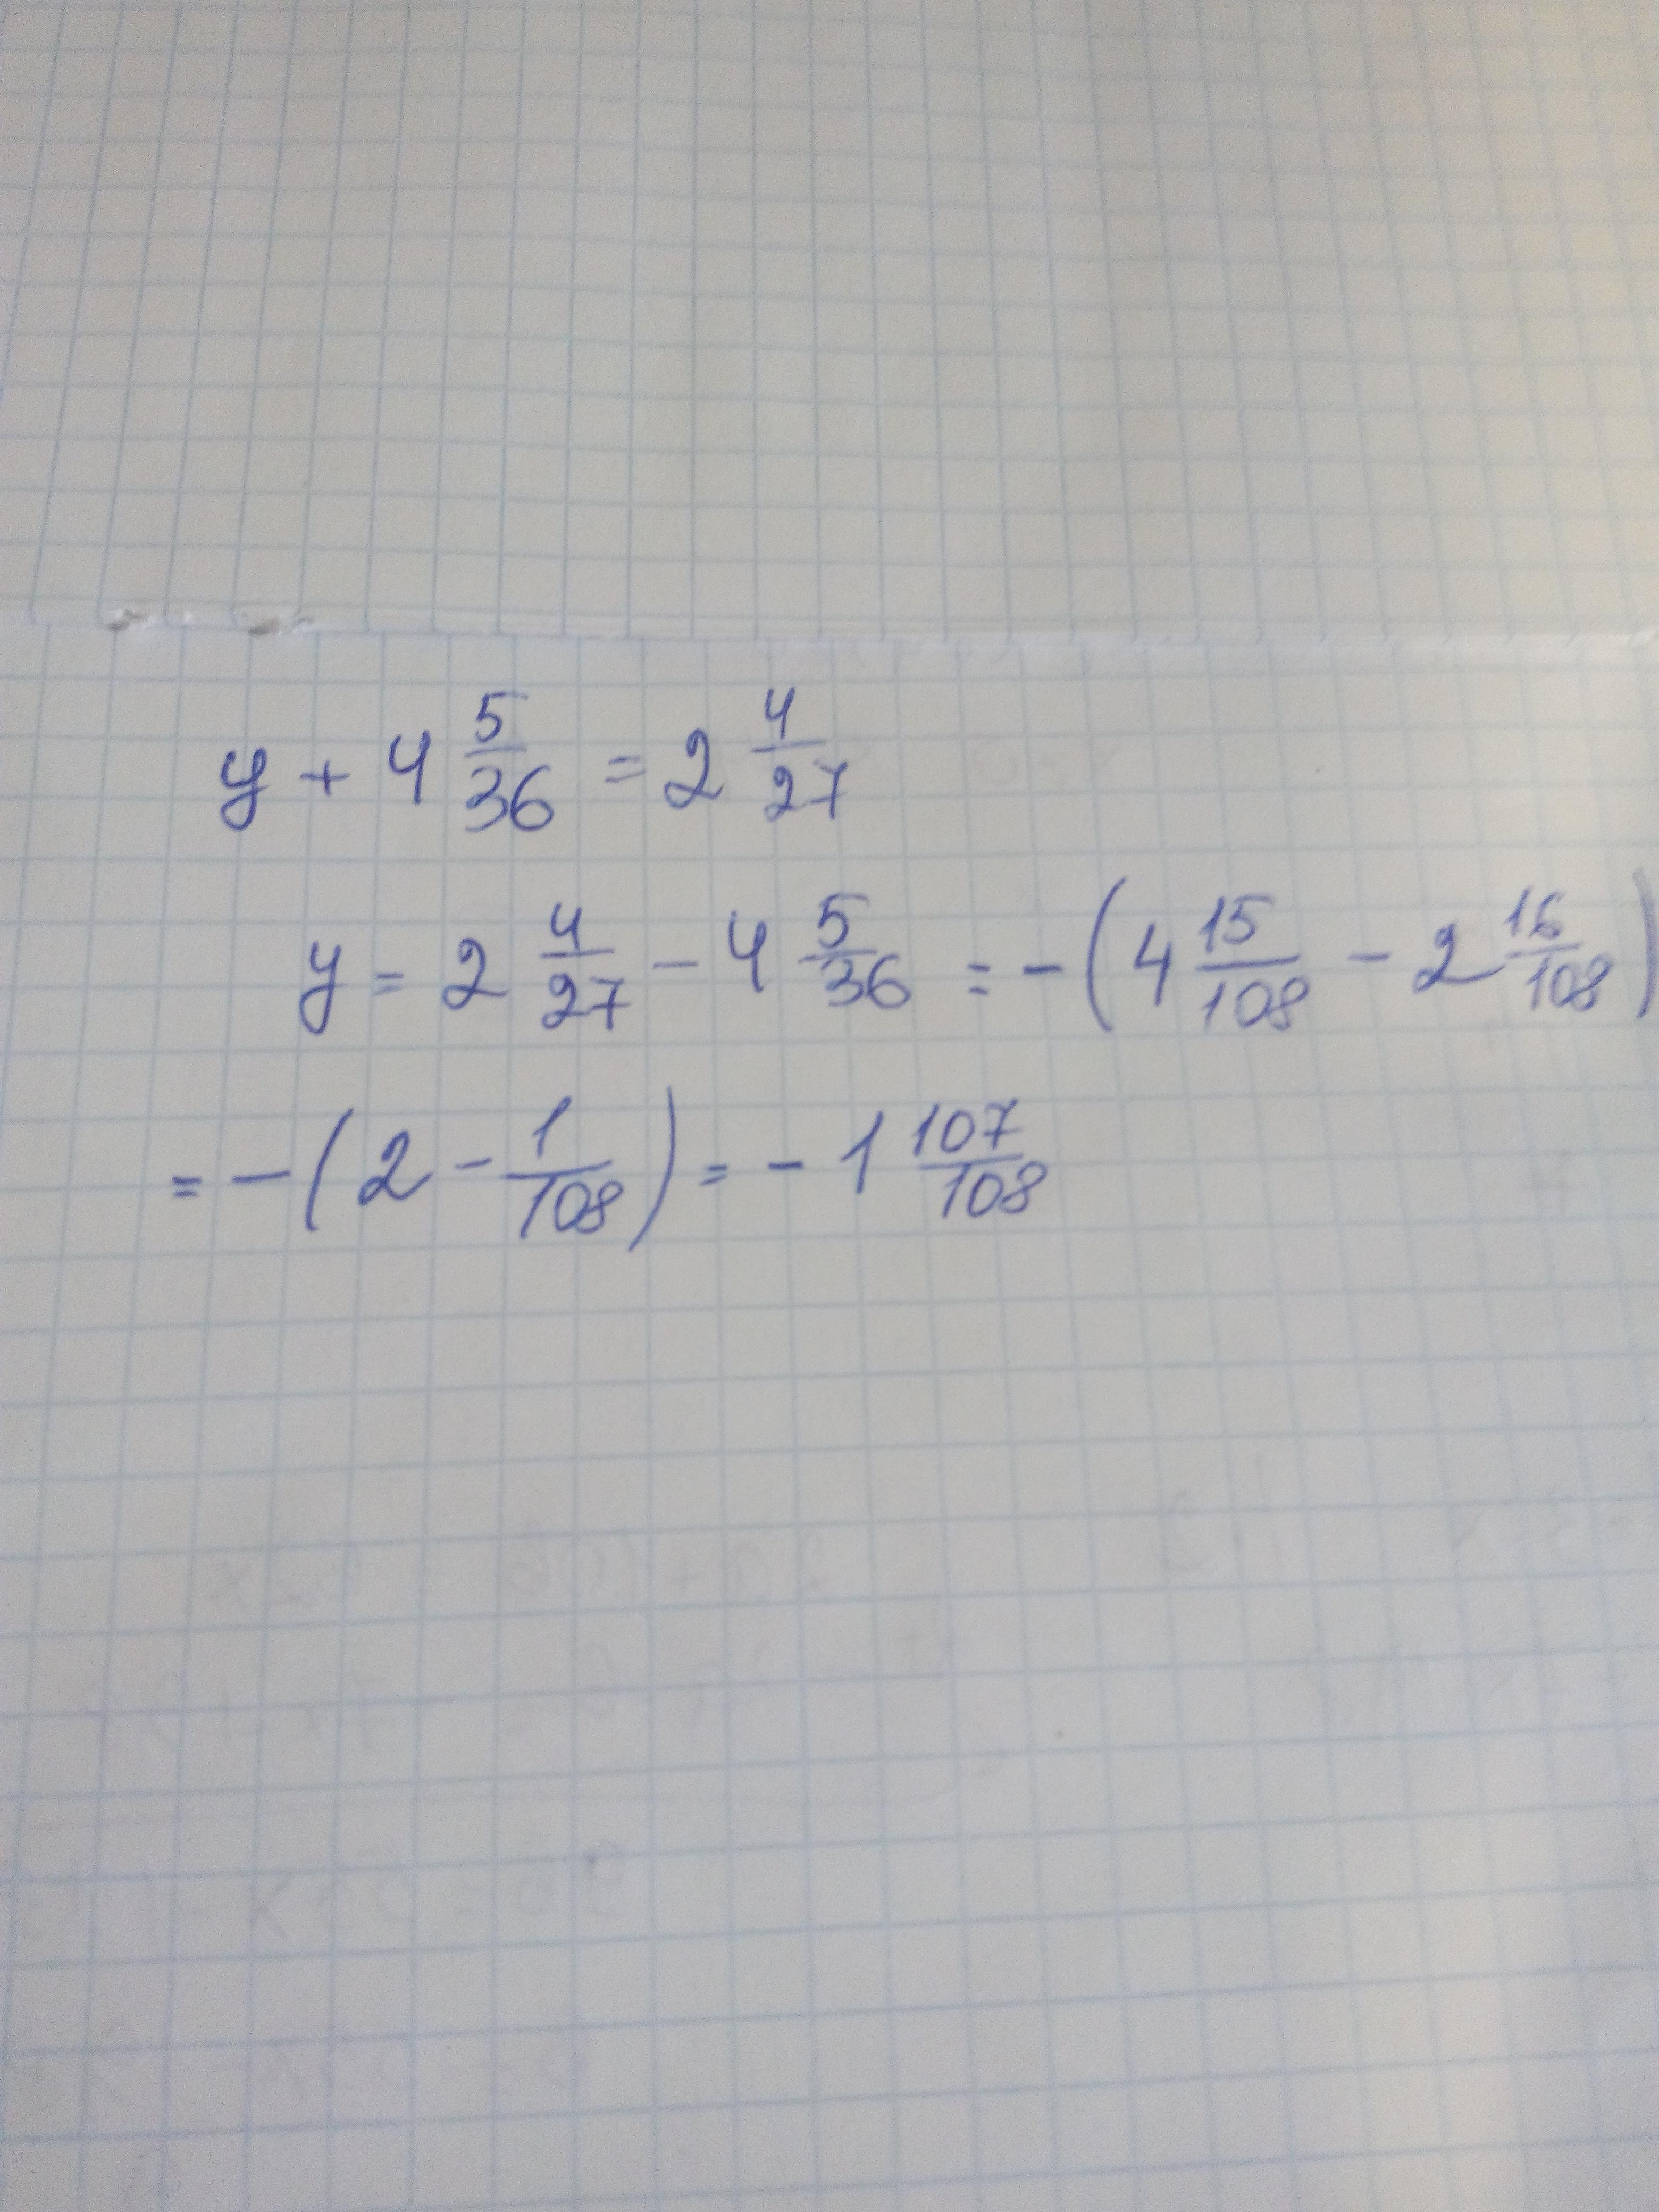 y + 4 5/36 = 2 4/27
y = 2 4/27 - 4 5/36 = - (4 15/108 - 2 16/108)
= - (2 - 1/108) = - 1 107/108